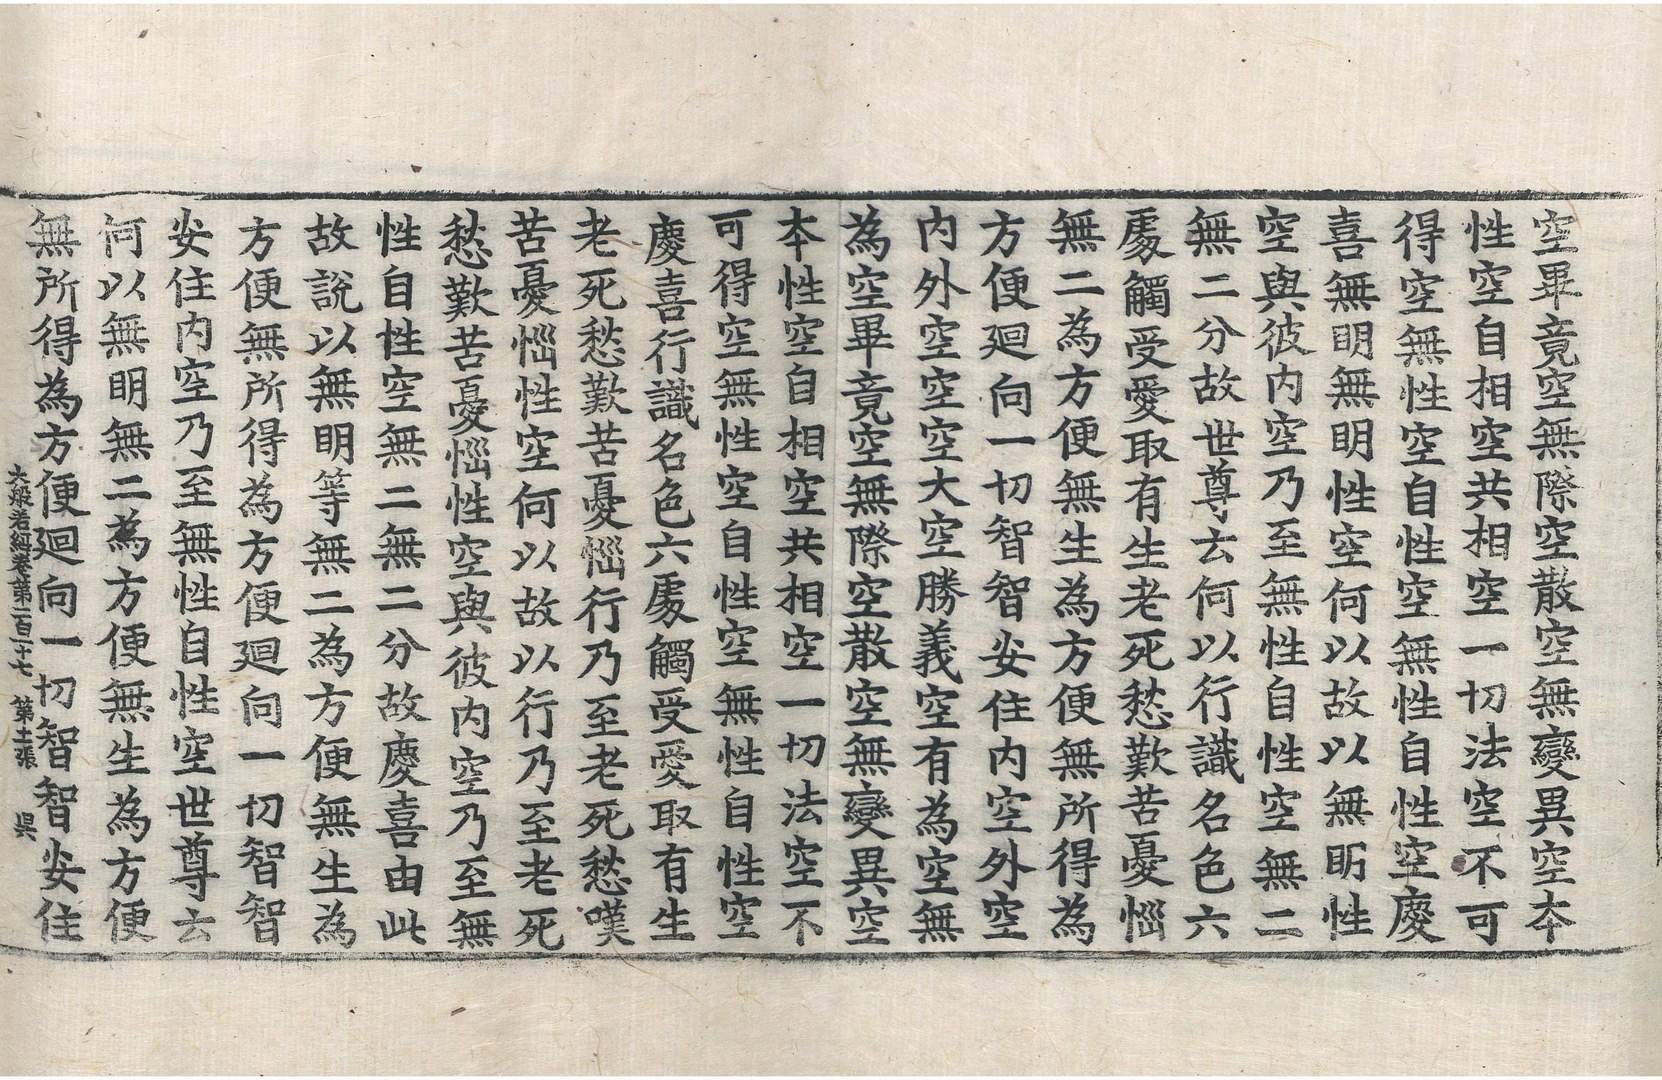 空畢竟空無際空散空無變異空本
性空自相空共相空一切法空不可
得空無性空自性空無性自性空慶
喜無明無明性空何以故以無明性
空與彼內空乃至無性自性空無二
無二分故世尊云何以行識名色六
處觸受愛取有生老死愁歎苦憂惱
無二為方便無生為方便無所得為
方便迴向一切智智安住內空外空
內外空空空大空勝義空有為空無
為空畢竟空無際空散空無變異空
本性空自相空共相空一切法空不
可得空無性空自性空無性自性空
慶喜行識名色六處觸受愛取有生
老死愁歎苦憂惱行乃至老死愁嘆
苦憂惱性空何以故以行乃至老死
愁歎苦憂惱性空與彼內空乃至無
性自性空無二無二分故慶喜由此
故說以無明等無二為方便無生為
方便無所得為方便迴向一切智智
安住內空乃至無性自性空世尊云
何以無明無二為方便無生為方便
無所得為方便迴向一切智智安住
大般若經卷第一百一十七 第十二張 昃